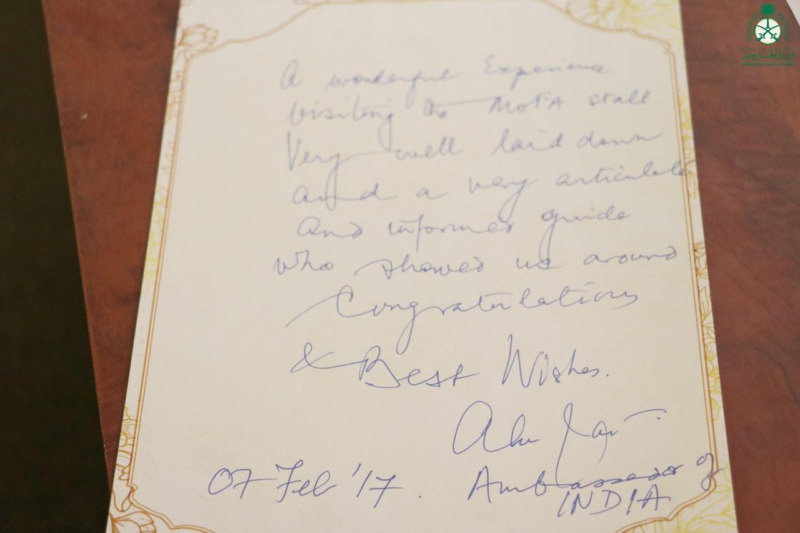 A wonderful Experience
visiting the MOFA stall.
Very well laid down
and a very articulate
and informed guide
who showed us around
Congratulations
& Best Wishes.
07 Feb '17. Ambassador of
INDIA